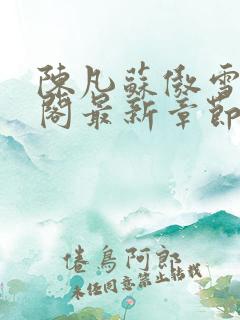 陳凡蘇傲雪
閣最新章節
倦鳥阿郎
未经同意禁止转载